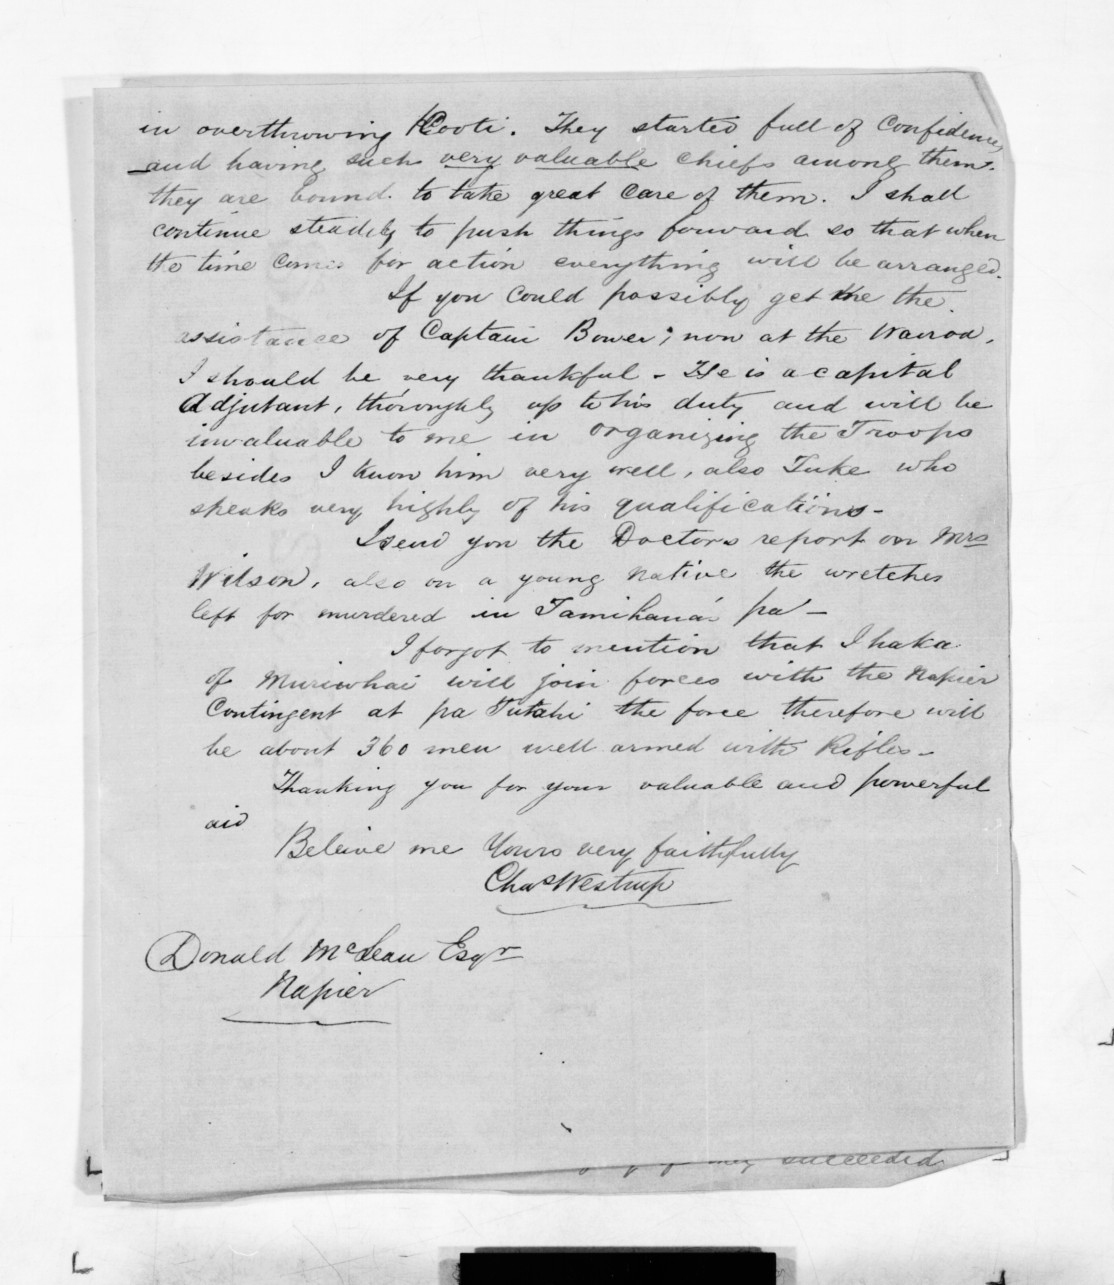 in overthrowing Kooti. They started full of Confidence,
and having such very valuable chiefs among them.
they are bound. to take great care of them. I shall
continue steadily to push things forward so that when
the time comes for action everything will be arranged.
If you could possibly get me the
assistance of Captain Bower; now at the Wairoa,
I should be very thankful - He is a capital
Adjutant, thoroughly up to his duty and will be
invaluable to me in organizing the Troops
besides I know him very well, also Tuke who
speaks very highly of his qualifications-
I send you the Doctors report on Mrs
Wilson, also on a young native the wretches
left for murdered in Tamihana's pa -
I forgot to mention that Ihaka
of Muriwhai will join forces with the Napier
Contingent at pa Tutahi the force therefore will
be about 360 men well armed with Rifles-
Thanking you for your valuable and powerful
aid
Beleive me Yours very faithfully
Chas Westrup
Donald McLean Esqr
Napier
succeeded